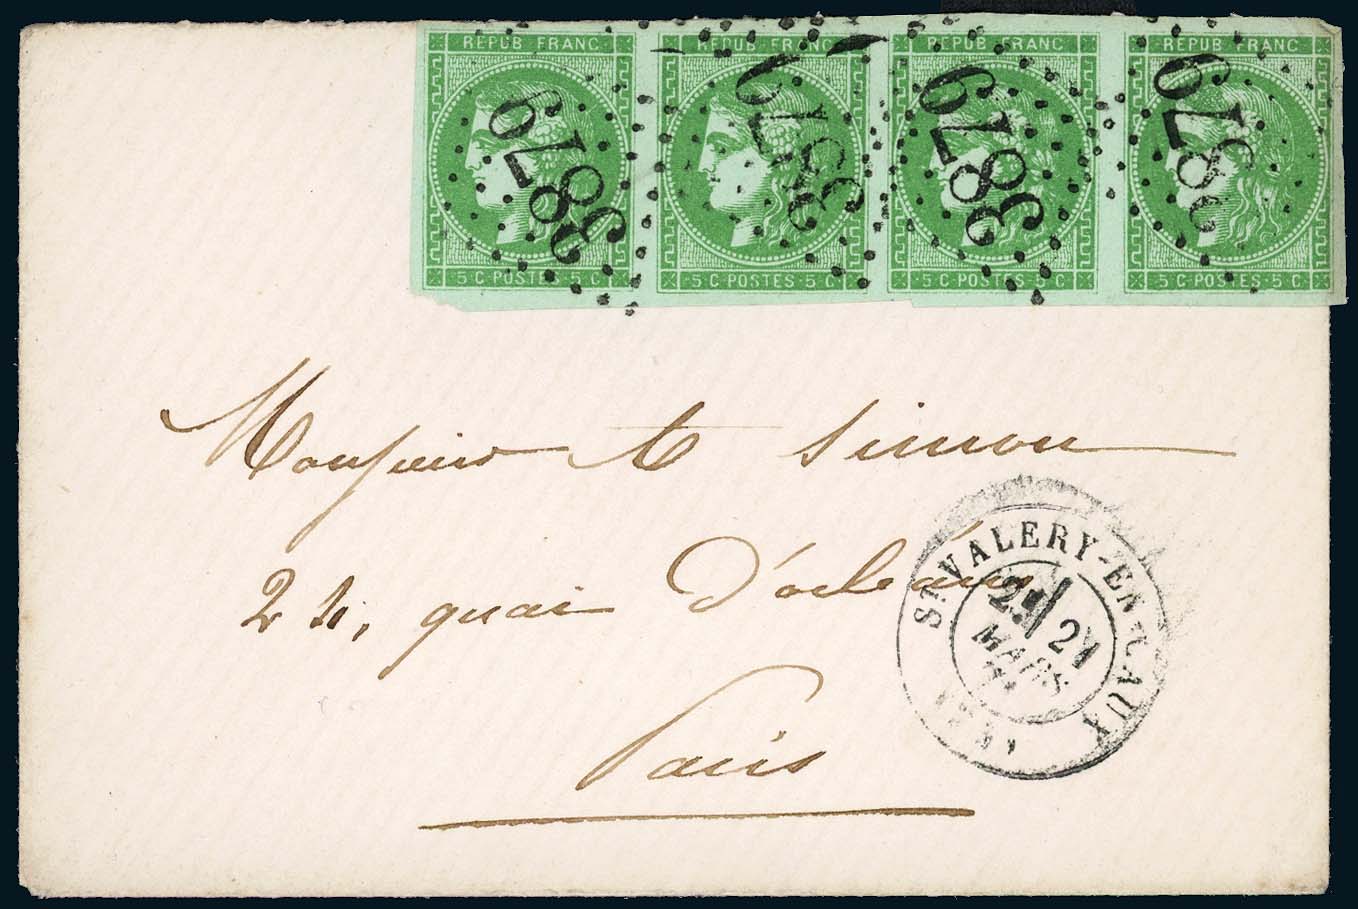 REPUB FRANC REPUB FRANC REPUB FRANC REPUB FRANC
3879 3879 3879 3879
5 C · POSTES · 5 C 5 C · POSTES · 5 C 5 C · POSTES · 5 C 5 C · POSTES · 5 C
Monsieur A Simon
24, quai d'orléans
Paris
ST VALERY-EN-CAUX
21
MARS
71